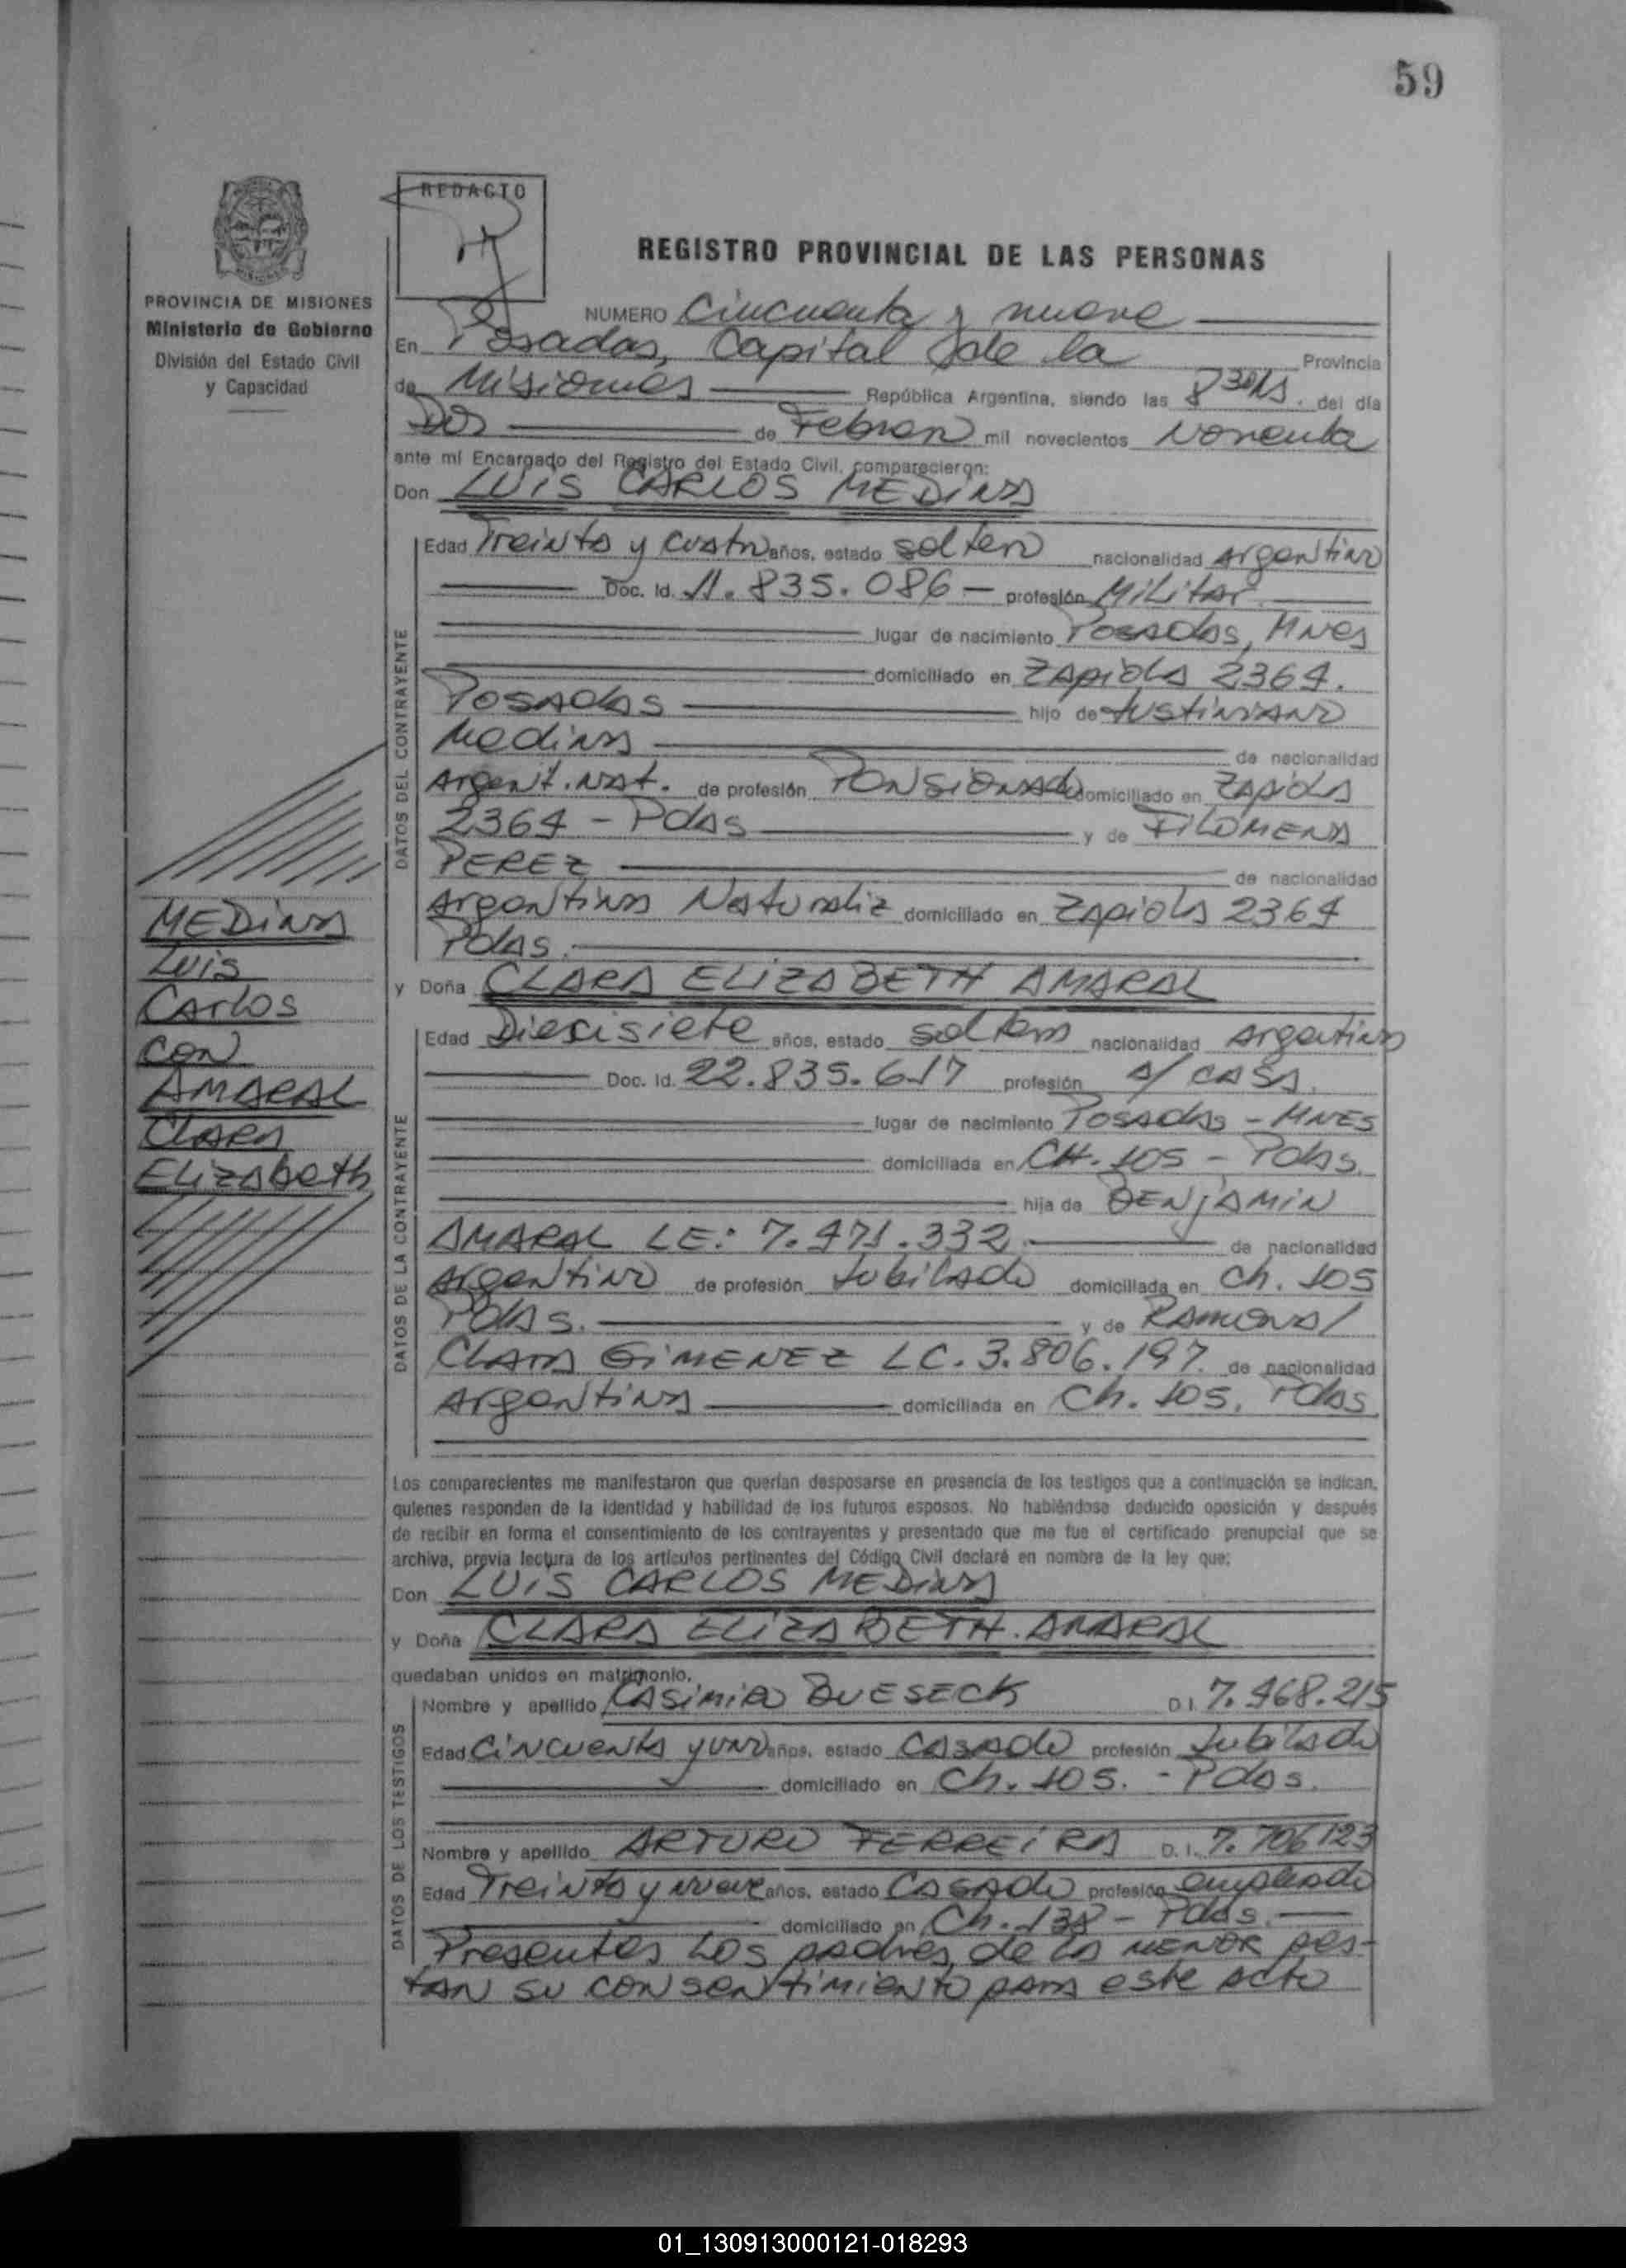 59
REDACTO
REGISTRO PROVINCIAL DE LAS PERSONAS
PROVINCIA DE MISIONES
Ministerio de Gobierno
División del Estado Civil
y Capacidad
NUMERO Cincuenta y nueve
En Posadas, Capital de la Provincia
de Misiones República Argentina, siendo las 8 30 hs. del día
Dos de Febrero mil novecientos Noventa
ante mí Encargado del Registro del Estado Civil, comparecieron:
Don LUIS CARLOS MEDINA
DATOS DEL CONTRAYENTE
Edad Treinta y cuatro años, estado soltero nacionalidad Argentino
Doc. Id. 11.835.086 - profesión Militar
lugar de nacimiento Posadas, Mnes
domiciliado en Zapiola 2364.
Posadas hijo de Justiniano
Medina de nacionalidad
Argent. Nat. de profesión Pensionado domiciliado en Zapiola
2364 - Pdas y de FILOMENA
PEREZ de nacionalidad
Argentina Naturaliz domiciliado en Zapiola 2364
Pdas.
MEDINA
Luis
Carlos
con
AMARAL
Clara
Elizabeth
y Doña CLARA ELIZABETH AMARAL
DATOS DE LA CONTRAYENTE
Edad Diecisiete años, estado soltera nacionalidad Argentina
Doc. Id. 22.835.617 profesión A/ CASA.
lugar de nacimiento Posadas - MNES
domiciliada en CH. 105 - Pdas.
hija de BENJAMIN
AMARAL LE: 7.471.332 de nacionalidad
Argentino de profesión Jubilado domiciliada en Ch. 105
Pdas. y de Ramona
Clara GIMENEZ LC. 3.806.197. de nacionalidad
Argentina domiciliada en Ch. 105. Pdas
Los comparecientes me manifestaron que querían desposarse en presencia de los testigos que a continuación se indican,
quienes responden de la identidad y habilidad de los futuros esposos. No habiéndose deducido oposición y después
de recibir en forma el consentimiento de los contrayentes y presentado que me fue el certificado prenupcial que se
archiva, previa lectura de los artículos pertinentes del Código Civil declaré en nombre de la ley que:
Don LUIS CARLOS MEDINA
y Doña CLARA ELIZABETH AMARAL
quedaban unidos en matrimonio.
DATOS DE LOS TESTIGOS
Nombre y apellido CASIMIRO BUESECK D.I. 7.468.215
Edad Cincuenta y uno años, estado Casado profesión Jubilado
domiciliado en Ch. 105. - Pdas.
Nombre y apellido ARTURO FERREIRA D.I. 7.706123
Edad Treinta y nueve años, estado Casado profesión empleado
domiciliado en Ch. 138 - Pdas.
Presentes Los padres de la MENOR pres-
tan su consentimiento para este acto
01_130913000121-018293